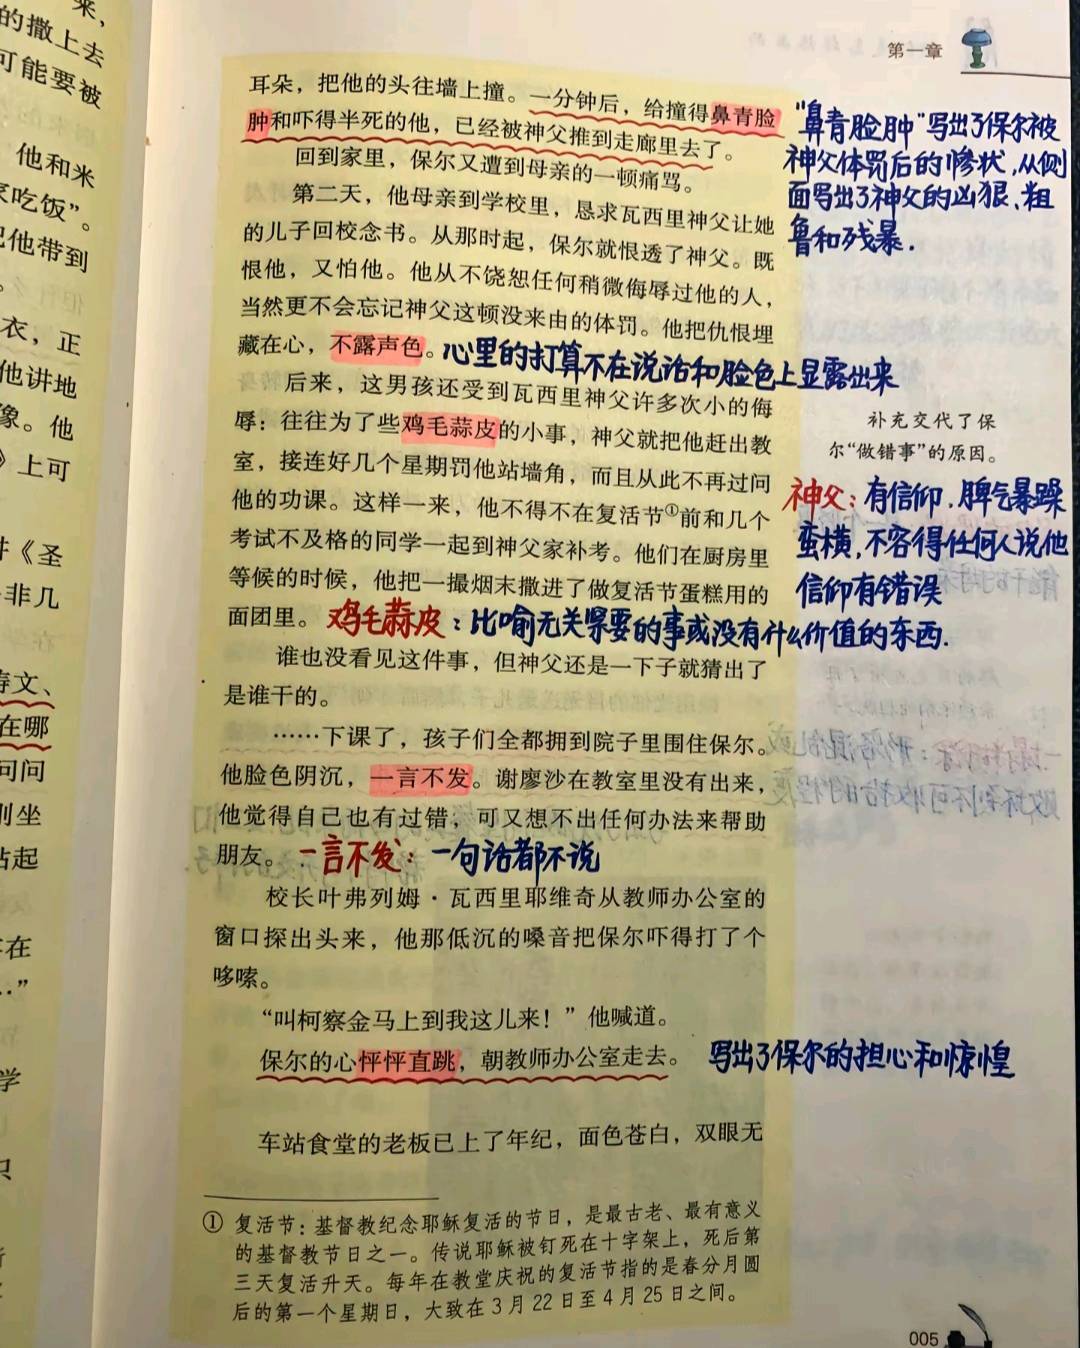 第一章
耳朵，把他的头往墙上撞。一分钟后，给撞得鼻青脸
肿和吓得半死的他，已经被神父推到走廊里去了。
回到家里，保尔又遭到母亲的一顿痛骂。
第二天，他母亲到学校里，恳求瓦西里神父让她
的儿子回校念书。从那时起，保尔就恨透了神父。既
恨他，又怕他。他从不饶恕任何稍微侮辱过他的人，
当然更不会忘记神父这顿没来由的体罚。他把仇恨埋
藏在心，不露声色。
心里的打算不在说话和脸色上显露出来
后来，这男孩还受到瓦西里神父许多次小的侮
辱：往往为了些鸡毛蒜皮的小事，神父就把他赶出教
室，接连好几个星期罚他站墙角，而且从此不再过问
他的功课。这样一来，他不得不在复活节①前和几个
考试不及格的同学一起到神父家补考。他们在厨房里
等候的时候，他把一撮烟末撒进了做复活节蛋糕用的
面团里。
鸡毛蒜皮：比喻无关紧要的事或没有什么价值的东西.
谁也没看见这件事，但神父还是一下子就猜出了
是谁干的。
……下课了，孩子们全都拥到院子里围住保尔。
他脸色阴沉，一言不发。谢廖沙在教室里没有出来，
他觉得自己也有过错，可又想不出任何办法来帮助
朋友。
一言不发：一句话都不说
校长叶弗列姆·瓦西里耶维奇从教师办公室的
窗口探出头来，他那低沉的嗓音把保尔吓得打了个
哆嗦。
“叫柯察金马上到我这儿来！”他喊道。
保尔的心怦怦直跳，朝教师办公室走去。
写出了保尔的担心和惊惶
车站食堂的老板已上了年纪，面色苍白，双眼无
① 复活节：基督教纪念耶稣复活的节日，是最古老、最有意义
的基督教节日之一。传说耶稣被钉死在十字架上，死后第
三天复活升天。每年在教堂庆祝的复活节指的是春分月圆
后的第一个星期日，大致在3月22日至4月25日之间。
“鼻青脸肿”写出了保尔被
神父体罚后的惨状，从侧
面写出了神父的凶狠、粗
鲁和残暴.
补充交代了保
尔“做错事”的原因。
神父：有信仰.脾气暴躁
蛮横，不容得任何人说他
信仰有错误
005
来，
的撒上去
可能要被
他和米
吃饭”。
他带到
衣，正
他讲地
像。他
》上可
《圣
非几
文、
在哪
问问
坐
站起
在
学